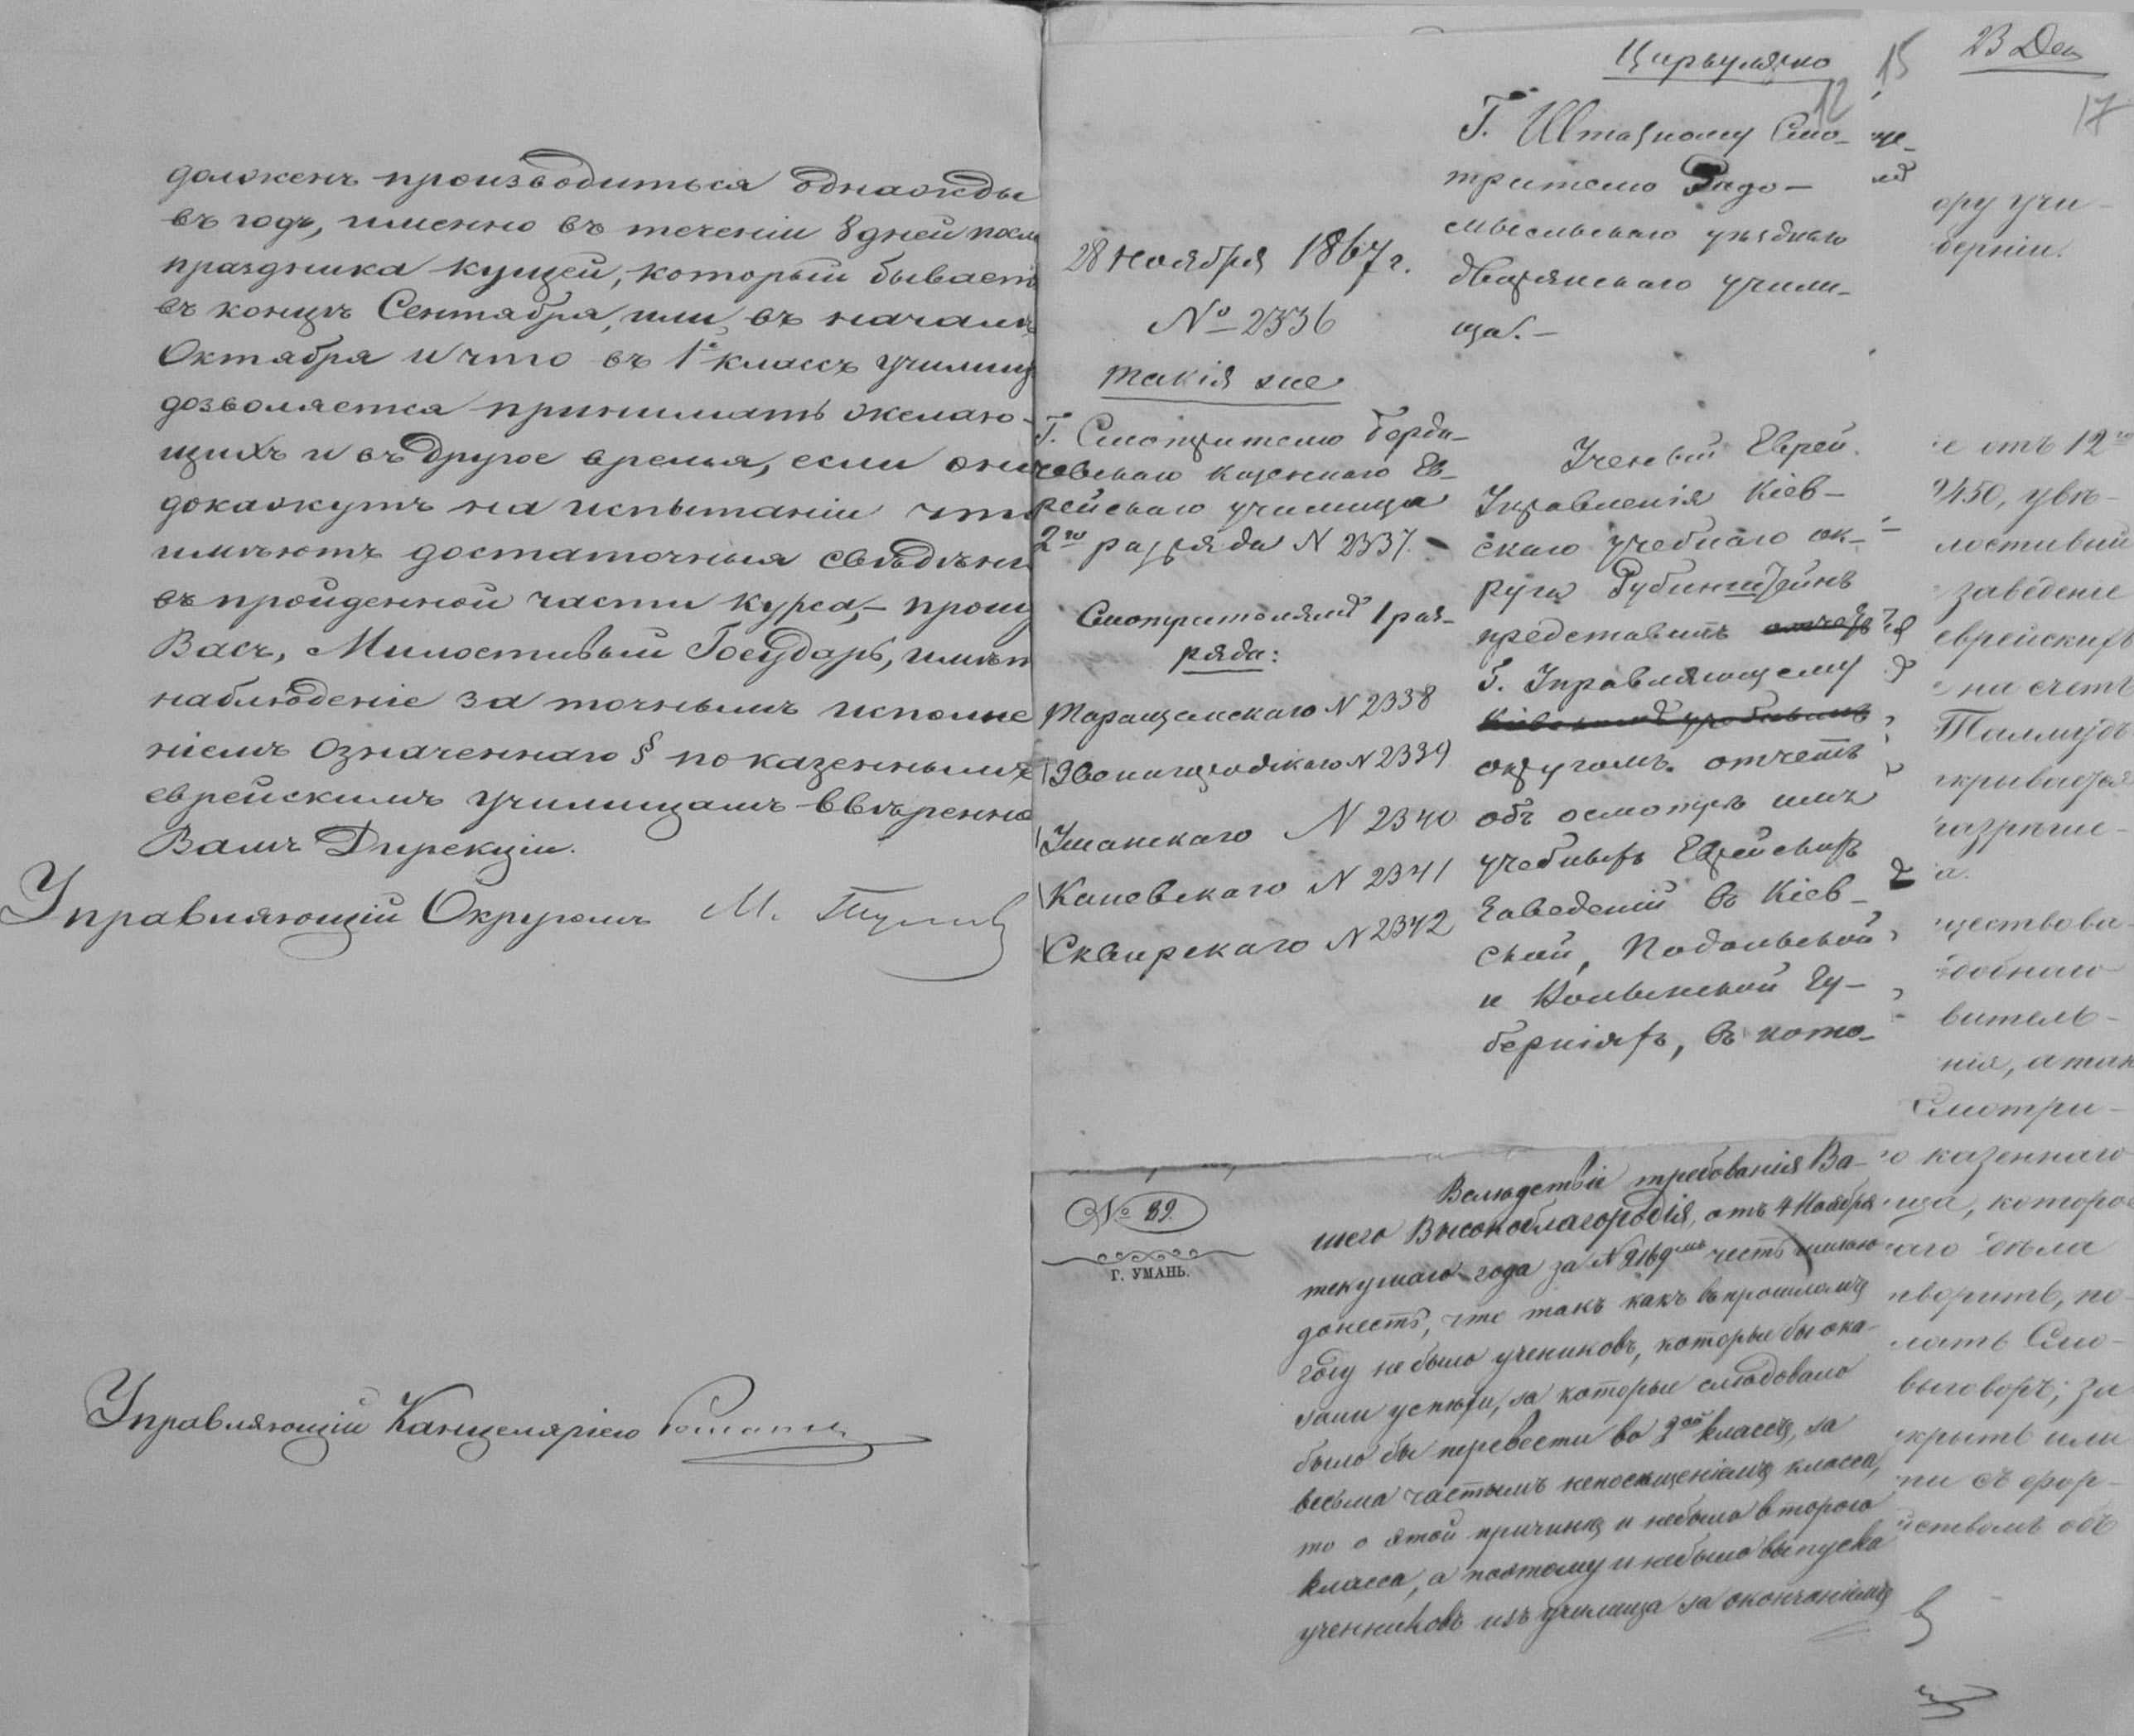 долженъ производиться однажды
въ годъ, именно въ теченіи 8 дней послѣ
праздника кущей, который бываетъ
въ концѣ Сентября, или въ началѣ
Октября и что въ 1й классъ училищ
дозволяется принимать желаю-
щихъ и въ другое время, если они
докажутъ на испытаніи что
имѣютъ достаточныя свѣдѣні
въ пройденной части курса, – прошу
Васъ, Милостивый Государь, имѣть
наблюденіе за точнымъ исполне
ніемъ означеннаго § по казеннымъ
еврейскимъ училищамъ ввѣренно
Вамъ Дирекціи.
Управляющій Округомъ М.
Управляющій Канцеляріею
28 ноября 1867 г.
№ 2336
такія же
Г. Смотрителю Берди-
чевскаго казеннаго Ев-
рейскаго училища
2го разряда N 2337. -
Смотрителямъ 1 раз-
ряда:
Таращанскаго N 2338
Звенигородскаго N 2339
Уманскаго N 2340
Каневскаго N 2341
Сквирскаго N 2342
Циркулярно
12
Г. Штатному Смо-
трителю Радо-
мысльскаго уѣзднаго
дворянскаго учили-
ща. –
Ученый Еврей
Управленія Кіев-
скаго учебнаго ок-
руга Рубинштейнъ
представилъ
Г. Управляющему
округомъ отчетъ
объ осмотрѣ имъ
учебныхъ Еврейскихъ
заведеній въ Кіев-
ской, Подольской
и Волынской Гу-
берніяхъ, въ кото-
№ 89.
Г. УМАНЬ.
Вслѣдствіе требованія Ва-
шего Высокоблагородія, отъ 4 Ноября
текущаго года за N 2169мъ честь имѣю
донесть, что такъ какъ въ прошломъ
году не было учениковъ, которые бы ока-
зали успѣхи, за которые слѣдовало
было бы перевести во 2ой классъ, за
весьма частымъ непосѣщеніемъ класса,
то о этой причинѣ и небыло втораго
класса, а поэтому и небыло выпуска
учениковъ изъ училища за окончаніемъ
15
23 Дек
17
ору учи-
берніи.
е отъ 12го
2450, увѣ-
лостивый
заведеніе
еврейскихъ
на счетъ
Талмудъ-
крывается
разрѣше-
а.
ществова-
добнаго
витель-
нія, а так
Смотри-
о казеннаго
ща, которое
аго дѣла
творить, по-
лать Смо-
выговоръ; за
крыть или
ти съ фор-
йствомъ объ